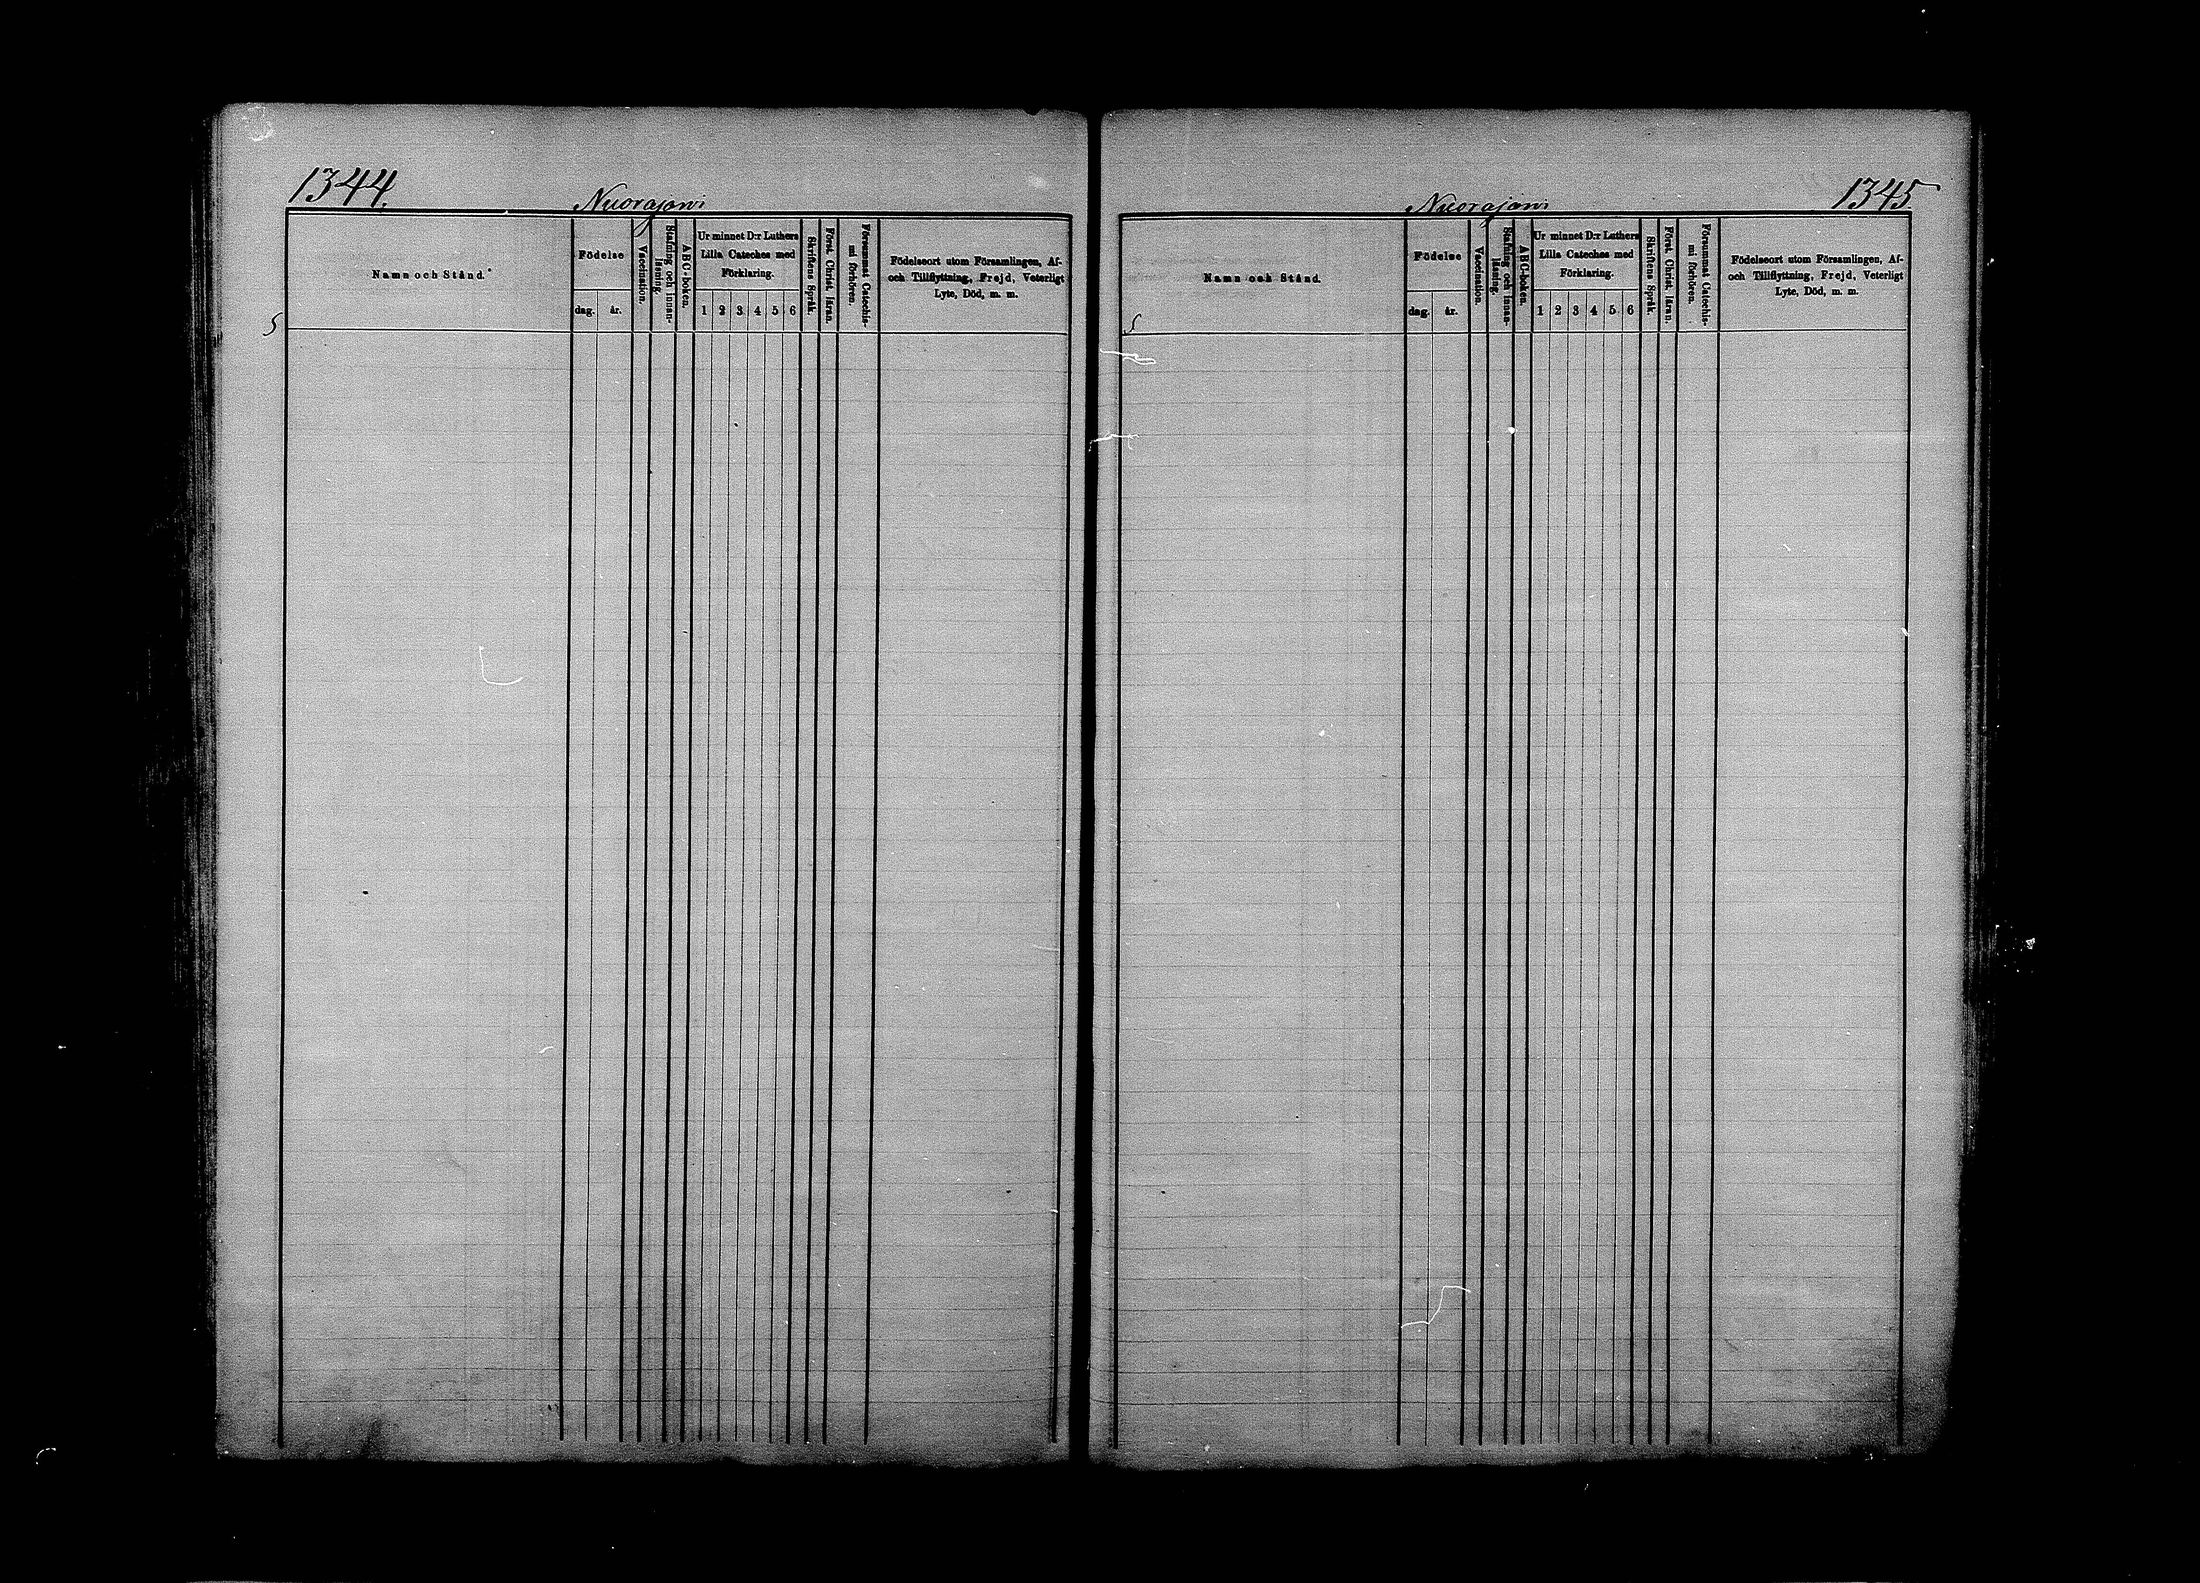 1344.
Nuorajoni
Namn och Stånd.
Födelse
dag. år.
Vaccination.
Stafning och innan-
läsning.
ABC-boken.
Ur minnet D:r Luthers
Lilla Cateches med
Förklaring.
1 2 3 4 5 6
Skriftens Språk.
Först. Christ. läran.
Försummat Catechis-
mi förhören.
Födelseort utom Församlingen, Af-
och Tillflyttning, Frejd, Veterligt
Lyte, Död, m. m.
5
1345
Nuorajoni
Namn och Stånd.
Födelse
dag. år.
Vaccination.
Stafning och innan-
läsning.
ABC-boken.
Ur minnet D:r Luthers
Lilla Cateches med
Förklaring.
1 2 3 4 5 6
Skriftens Språk.
Först. Christ. läran.
Försummat Catechis-
mi förhören.
Födelseort utom Församlingen, Af-
och Tillflyttning, Frejd, Veterligt
Lyte, Död, m. m.
5